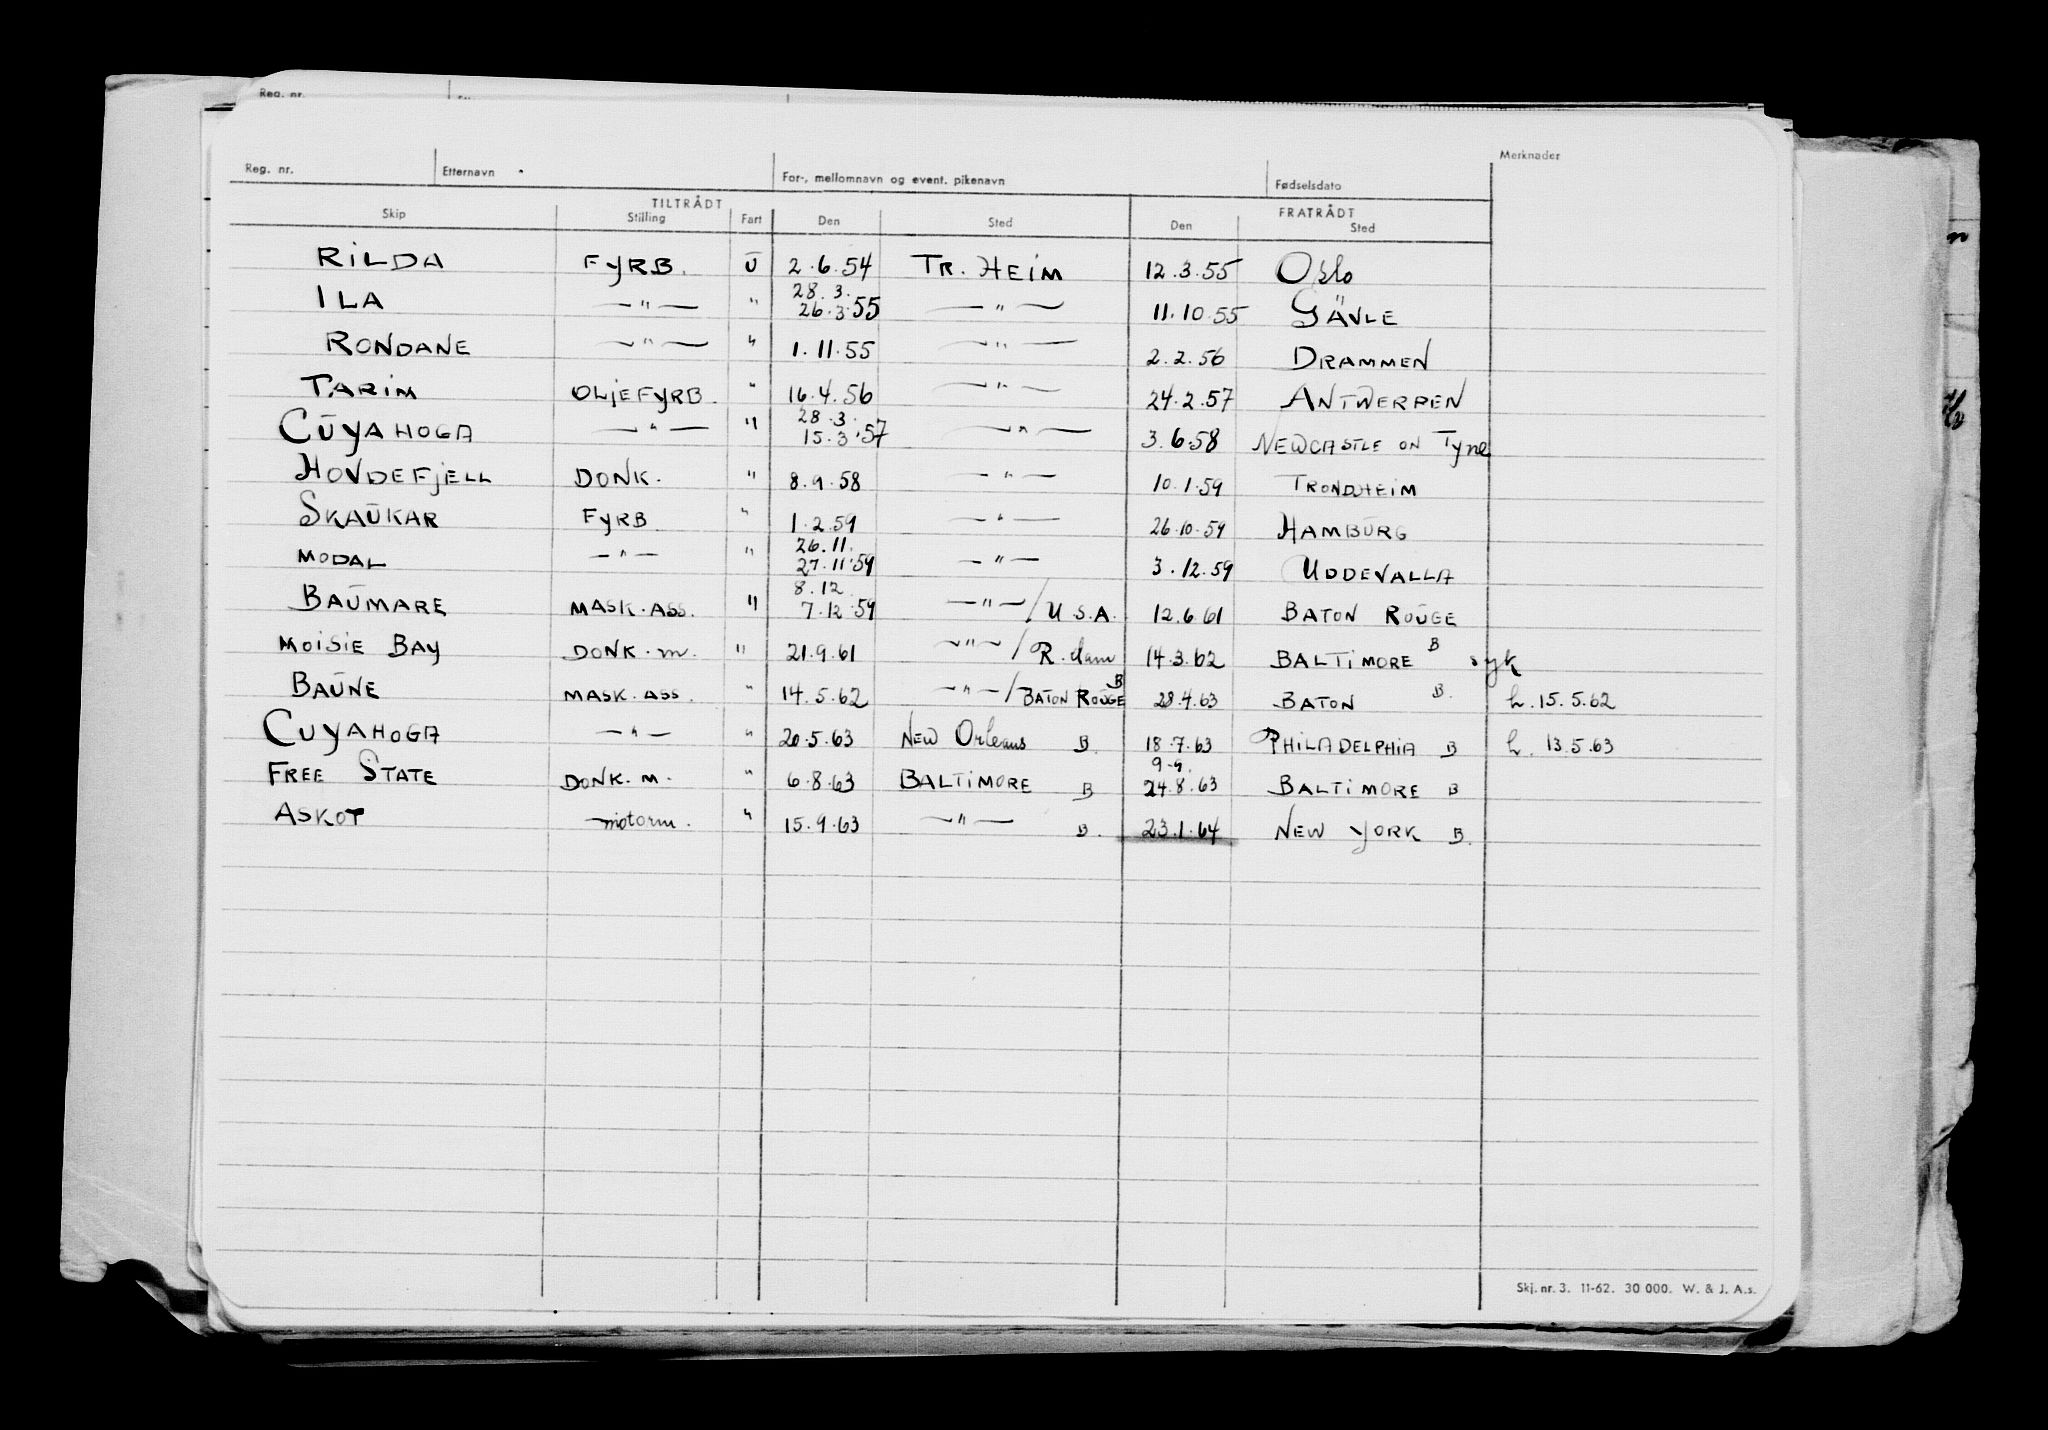 Reg. nr.
Merknader
Reg. nr. Etternavn For-, mellomnavn og event. pikenavn Fødselsdato
TILTRÅDT FRATRÅDT
Skip Stilling Fart Den Sted Den Sted
RILDA FYRB. Ū 2.6.54 TR. HEIM 12.3.55 Oslo
28.3.
ILA —"— " 26.3.55 —"— 11.10.55 GÄVLE
RONDANE —"— " 1.11.55 —"— 2.2.56 DRAMMEN
TARIM OLJEFYRB. " 16.4.56 —"— 24.2.57 ANTWERPEN
28.3.
CŪYAHOGA —"— " 15.3.57 —"— 3.6.58 NEWCASTLE ON Tyne
HOVDEFJELL DONK. " 8.9.58 —"— 10.1.59 TRONDHEIM
SKAŪKAR FYRB " 1.2.59 —"— 26.10.59 HAMBŪRG
26.11.
MODAL —"— " 27.11.59 —"— 3.12.59 UDDEVALLA
8.12
BAŪMARE MASK.ASS. " 7.12.59 —"—/U.S.A. 12.6.61 BATON ROŪGE
MOISIE BAY DONK.m. " 21.9.61 —"—/R.dam 14.3.62 BALTIMORE B syk
BAŪNE MASK.ASS. " 14.5.62 —"—/BATON ROŪGE B 28.4.63 BATON B. h.15.5.62
CUYAHOGA —"— " 20.5.63 NEW Orleans B. 18.7.63 PHILADELPHIA B h. 13.5.63
9.9.
FREE STATE DONK.M. " 6.8.63 BALTIMORE B 24.8.63 BALTIMORE B
ASKOT motorm. " 15.9.63 —"— B. 23.1.64 NEW YORK B.
Skj. nr. 3. 11-62. 30 000. W. & J. A.s.